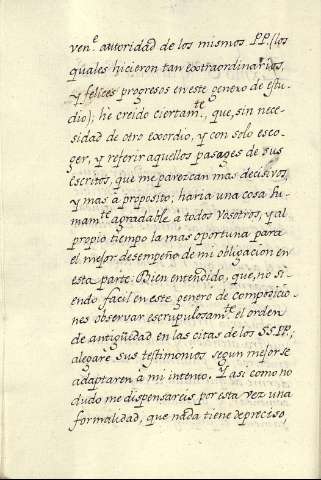 ven.e autoridad de los mismos PP. (los
quales hicieron tan extraordinarios,
y felices progresos en este genero de estu-
dio); he creido ciertam.te que, sin nece-
sidad de otro exordio, y con solo esco-
ger, y referir aquellos pasages de sus
escritos, que me parezcan mas decisivos,
y mas à proposito; haria una cosa su-
mam.te agradable à todos vosotros, y al
propio tiempo la mas oportuna para
el mejor desempeño de mi obligacion en
esta parte. Bien entendido, que, no si-
endo facil en este genero de composicio-
nes observar escrupulosam.te el orden
de antigüedad en las citas de los SS.PP.;
alegarè sus testimonios segun mejor se
adaptaren à mi intento. Y asi como no
dudo me dispensareis por esta vez una
formalidad, que nada tiene de preciso,